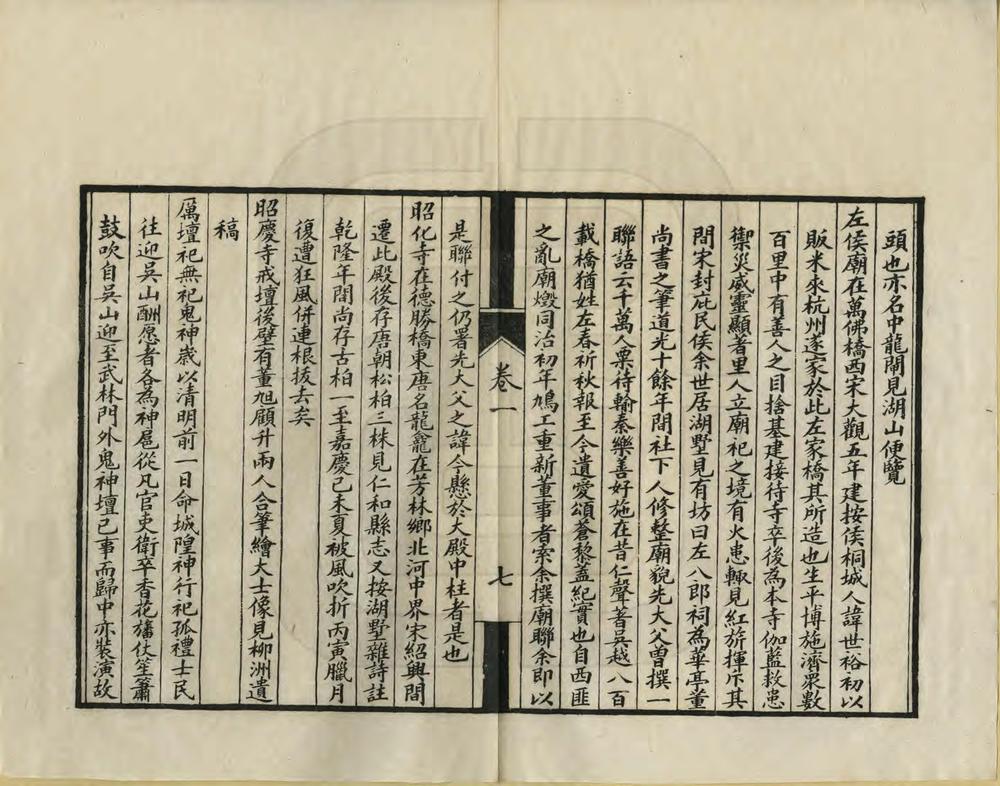 頭也亦名中龍閘見湖山便覽
左侯廟在萬佛橋西宋大觀五年建按侯桐城人諱世裕初以
販米來杭州遂家於此左家橋其所造也生平博施濟衆數
百里中有善人之目捨基建接待寺卒後為本寺伽藍救患
禦災威靈顯著里人立廟祀之境有火患輒見紅旂揮斥其
間宋封庇民侯余世居湖墅見有坊曰左八郎祠為華亭董
尚書之筆道光十餘年間社下人修整廟貌先大父曾撰一
聯語云千萬人粟待輸秦樂善好施在昔仁聲著吳越八百
載橋猶姓左春祈秋報至今遺愛頌蒼黎蓋紀實也自西匪
之亂廟燬同治初年鳩工重新董事者索余撰廟聯余即以
卷一
七
是聯付之仍署先大父之諱今懸於大殿中柱者是也
昭化寺在德勝橋東唐名龍龕在芳林鄉北河中界宋紹興間
遷此殿後存唐朝松柏三株見仁和縣志又按湖墅雜詩註
乾隆年間尚存古柏一至嘉慶己未夏被風吹折丙寅臘月
復遭狂風併連根拔去矣
昭慶寺戒壇後壁有董旭顧升兩人合筆繪大士像見柳洲遺
稿
厲壇祀無祀鬼神歲以清明前一日命城隍神行祀孤禮士民
往迎吳山酬愿者各為神扈從凡官吏衛卒香花旛仗笙簫
鼓吹自吳山迎至武林門外鬼神壇已事而歸中亦裝演故